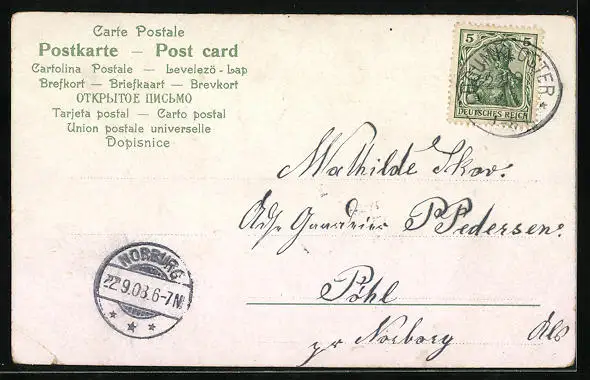 Carte Postale
Postkarte — Post card
Cartolina Postale — Levelező-Lap
Brefkort — Briefkaart — Brevkort
ОТКРЫТОЕ ПИСЬМО
Tarjeta postal — Carto postal
Union postale universelle
Dopisnice
5 5
DEUTSCHES REICH
Mathilde Skov.
Adr. Gaardeier P. Pedersen.
Pöhl
pr Norborg Als
NORBURG
22.9.08.6-7N.